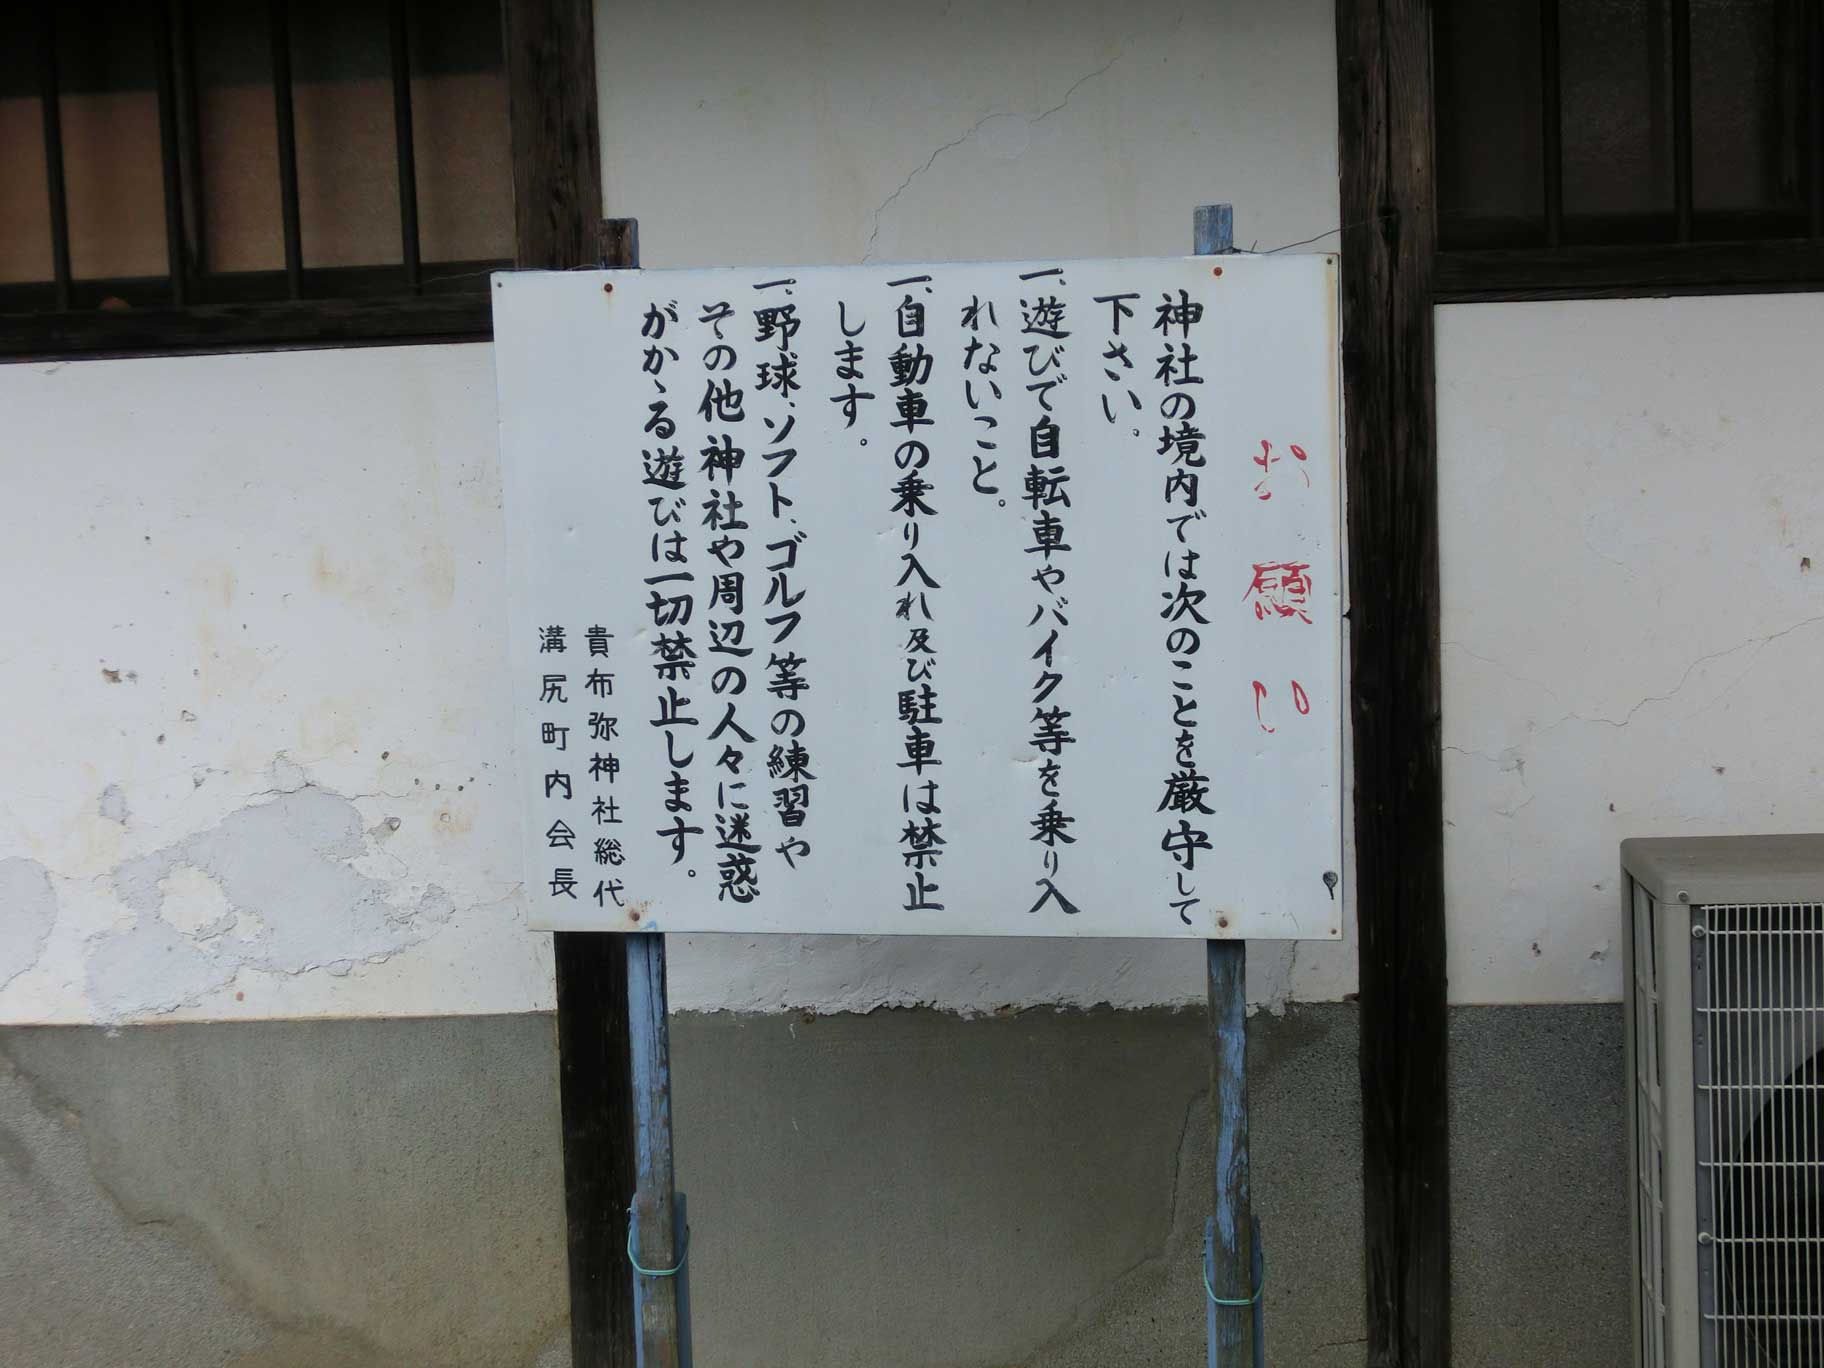 お願い
神社の境内では次のことを厳守して
下さい。
一、遊びで自転車やバイク等を乗り入
れないこと。
一、自動車の乗り入れ及び駐車は禁止
します。
一、野球、ソフト、ゴルフ等の練習や
その他神社や周辺の人々に迷惑
がかゝる遊びは一切禁止します。
貴布弥神社総代
溝尻町内会長